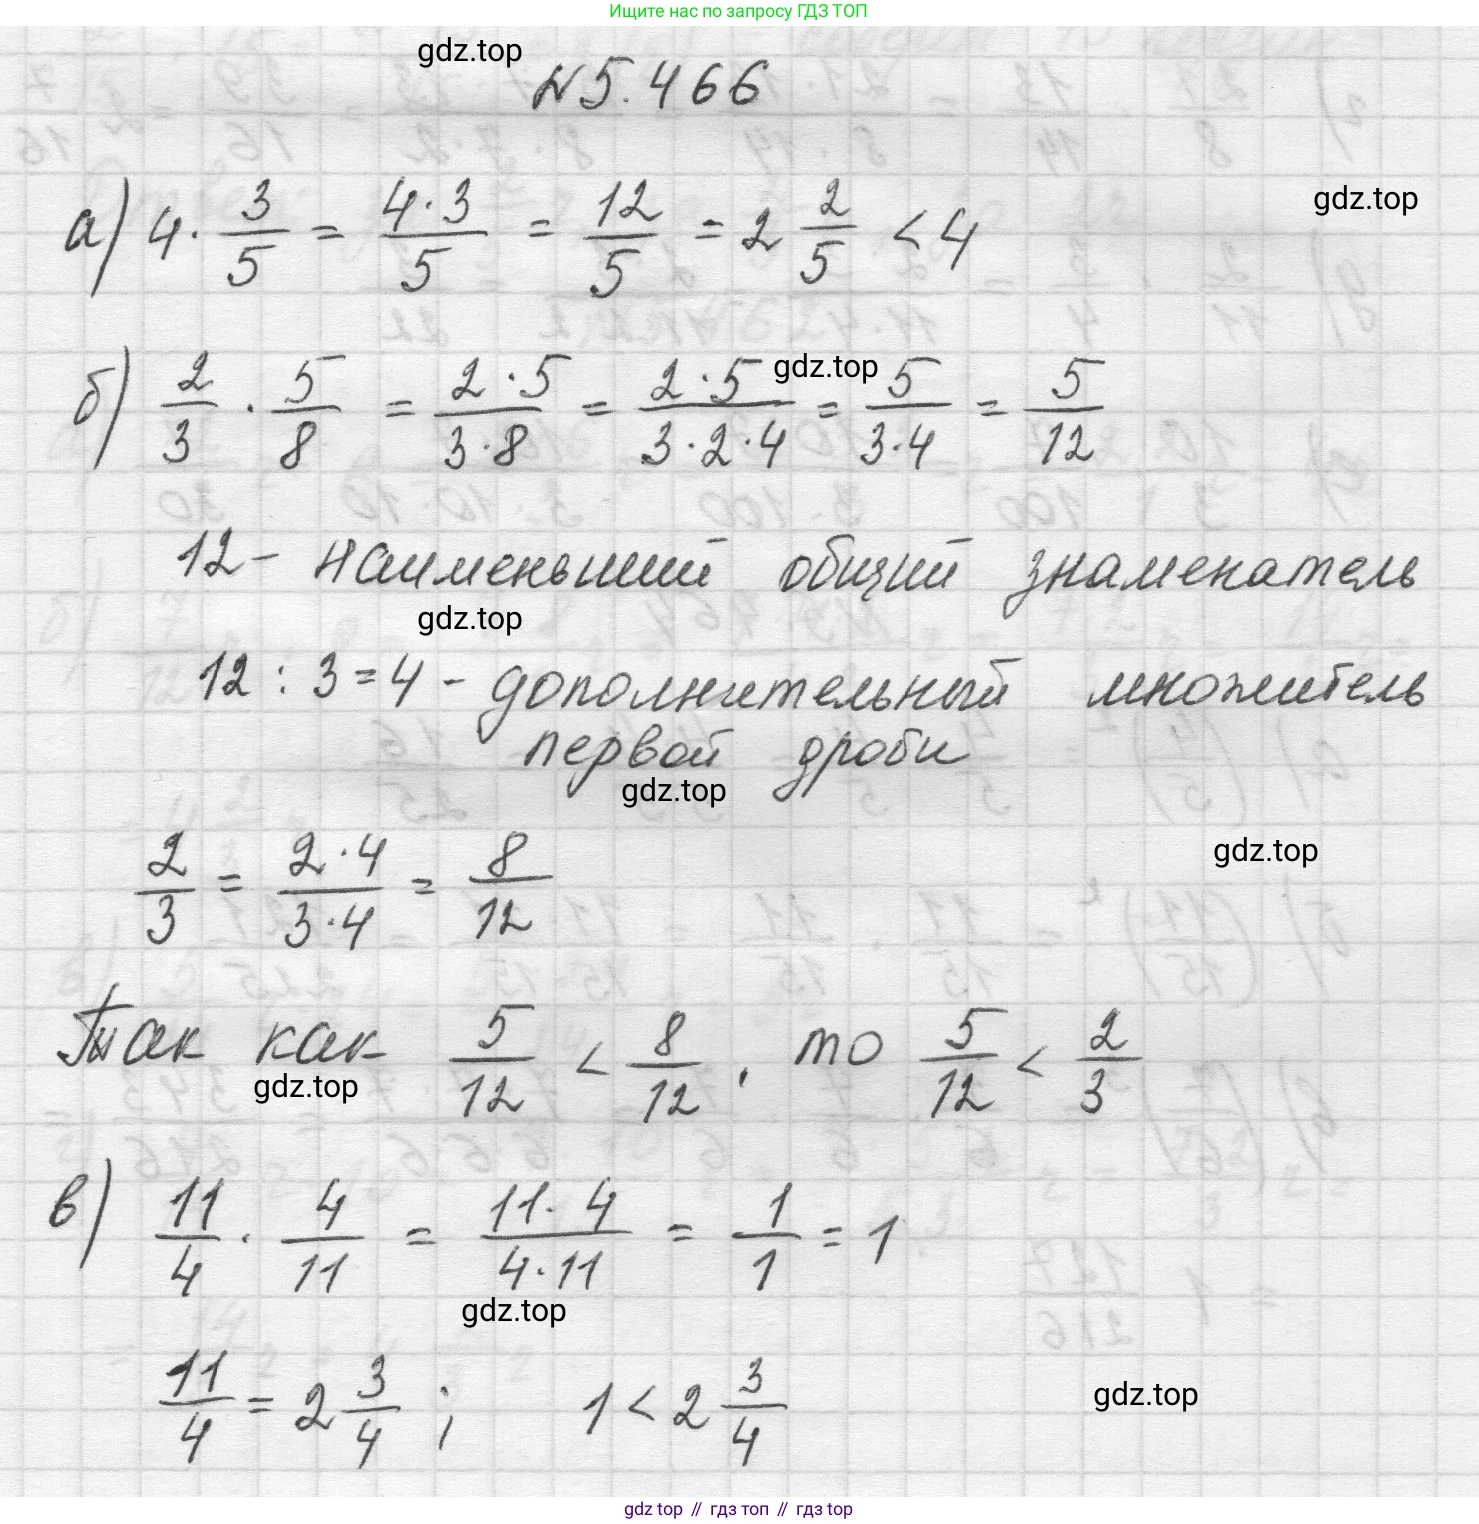 Ищите нас по запросу ГДЗ ТОП
gdz.top
№5.466
gdz.top
а) 4 · 3/5 = 4·3/5 = 12/5 = 2 2/5 < 4
gdz.top
б) 2/3 · 5/8 = 2·5/3·8 = 2·5/3·2·4 = 5/3·4 = 5/12
12 – наименьший общий знаменатель
gdz.top
12 : 3 = 4 – дополнительный множитель
первой дроби
gdz.top
gdz.top
2/3 = 2·4/3·4 = 8/12
Так как 5/12 < 8/12, то 5/12 < 2/3
gdz.top
в) 11/4 · 4/11 = 11·4/4·11 = 1/1 = 1
gdz.top
11/4 = 2 3/4 ; 1 < 2 3/4
gdz.top
gdz top // гдз топ // gdz top